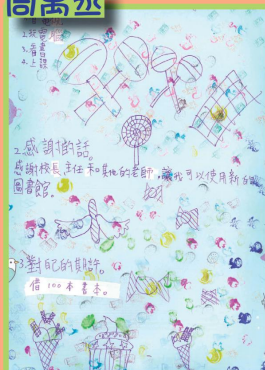 同萬丞
3.看書
4.上課
2.感謝的話。
感謝校長、主任和其他的老師,讓我可以使用新的
圖書館。
3.對自己的期許。
借100本書本。